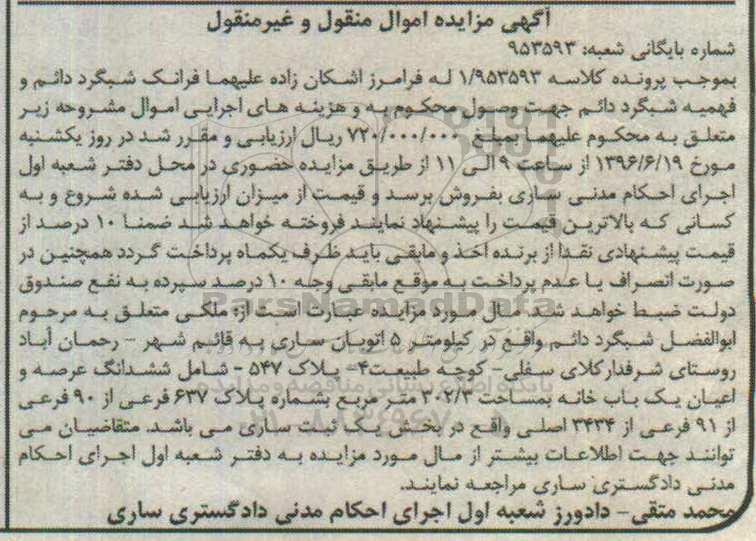 آگهی مزایده اموال منقول و غیرمنقول
شماره بایگانی شعبه: ۹۵۳۵۹۳
بموجب پرونده کلاسه ۱/۹۵۳۵۹۳ له فرامرز اشکان زاده علیهما فرانک شبگرد دائم و
فهمیه شبگرد دائم جهت وصول محکوم به و هزینه های اجرایی اموال مشروحه زیر
متعلق به محکوم علیهما بمبلغ ۷۲۰/۰۰۰/۰۰۰ ریال ارزیابی و مقرر شد در روز یکشنبه
مورخ ۱۳۹۶/۶/۱۹ از ساعت ۹ الی ۱۱ از طریق مزایده حضوری در محل دفتر شعبه اول
اجرای احکام مدنی ساری بفروش برسد و قیمت از میزان ارزیابی شده شروع و به
کسانی که بالاترین قیمت را پیشنهاد نمایند فروخته خواهد شد ضمنا ۱۰ درصد از
قیمت پیشنهادی نقدا از برنده اخذ و مابقی باید ظرف یکماه پرداخت گردد همچنین در
صورت انصراف یا عدم پرداخت به موقع مابقی وجه ۱۰ درصد سپرده به نفع صندوق
دولت ضبط خواهد شد. مال مورد مزایده عبارت است از: ملکی متعلق به مرحوم
ابوالفضل شبگرد دائم واقع در کیلومتر ۵ اتوبان ساری به قائم شهر - رحمان آباد
روستای شرفدارکلای سفلی- کوچه طبیعت۴- پلاک ۵۴۷ - شامل ششدانگ عرصه و
اعیان یک باب خانه بمساحت ۳۰۲/۳ متر مربع بشماره پلاک ۶۳۷ فرعی از ۹۰ فرعی
از ۹۱ فرعی از ۳۴۳۴ اصلی واقع در بخش یک ثبت ساری می باشد. متقاضیان می
توانند جهت اطلاعات بیشتر از مال مورد مزایده به دفتر شعبه اول اجرای احکام
مدنی دادگستری ساری مراجعه نمایند.
محمد متقی- دادورز شعبه اول اجرای احکام مدنی دادگستری ساری
ParsNamadData